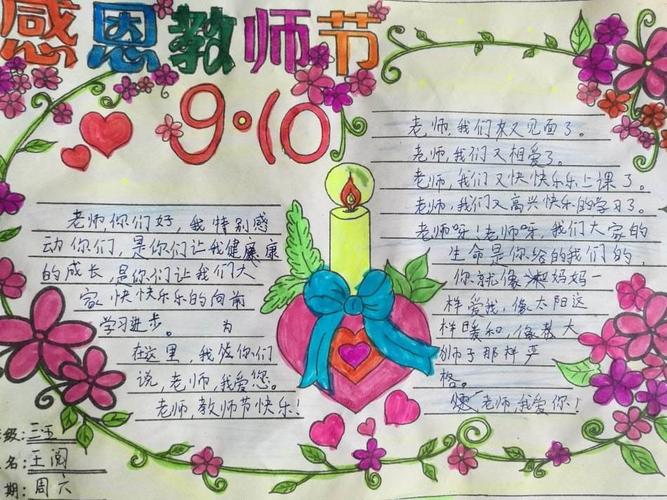 感恩教师节
9·10
老师,你们好,我特别感
动你们,是你们让我健康康
的成长,是你们让我们大
家快快乐乐的向前
学习进步。 为
在这里,我给你们
说,老师,我爱您。
老师,教师节快乐!
老师,我们又见面了。
老师,我们又相爱了。
老师,我们又快快乐乐上课了。
老师,我们又高兴快乐的学习了。
老师呀!老师呀,我们大家的
生命是你给的我们的
你就像妈妈一
样爱我,像太阳这
样暖和,像大
狮子那样严
格。
老师,我爱你!
级:三五
名:王阅
期:周六